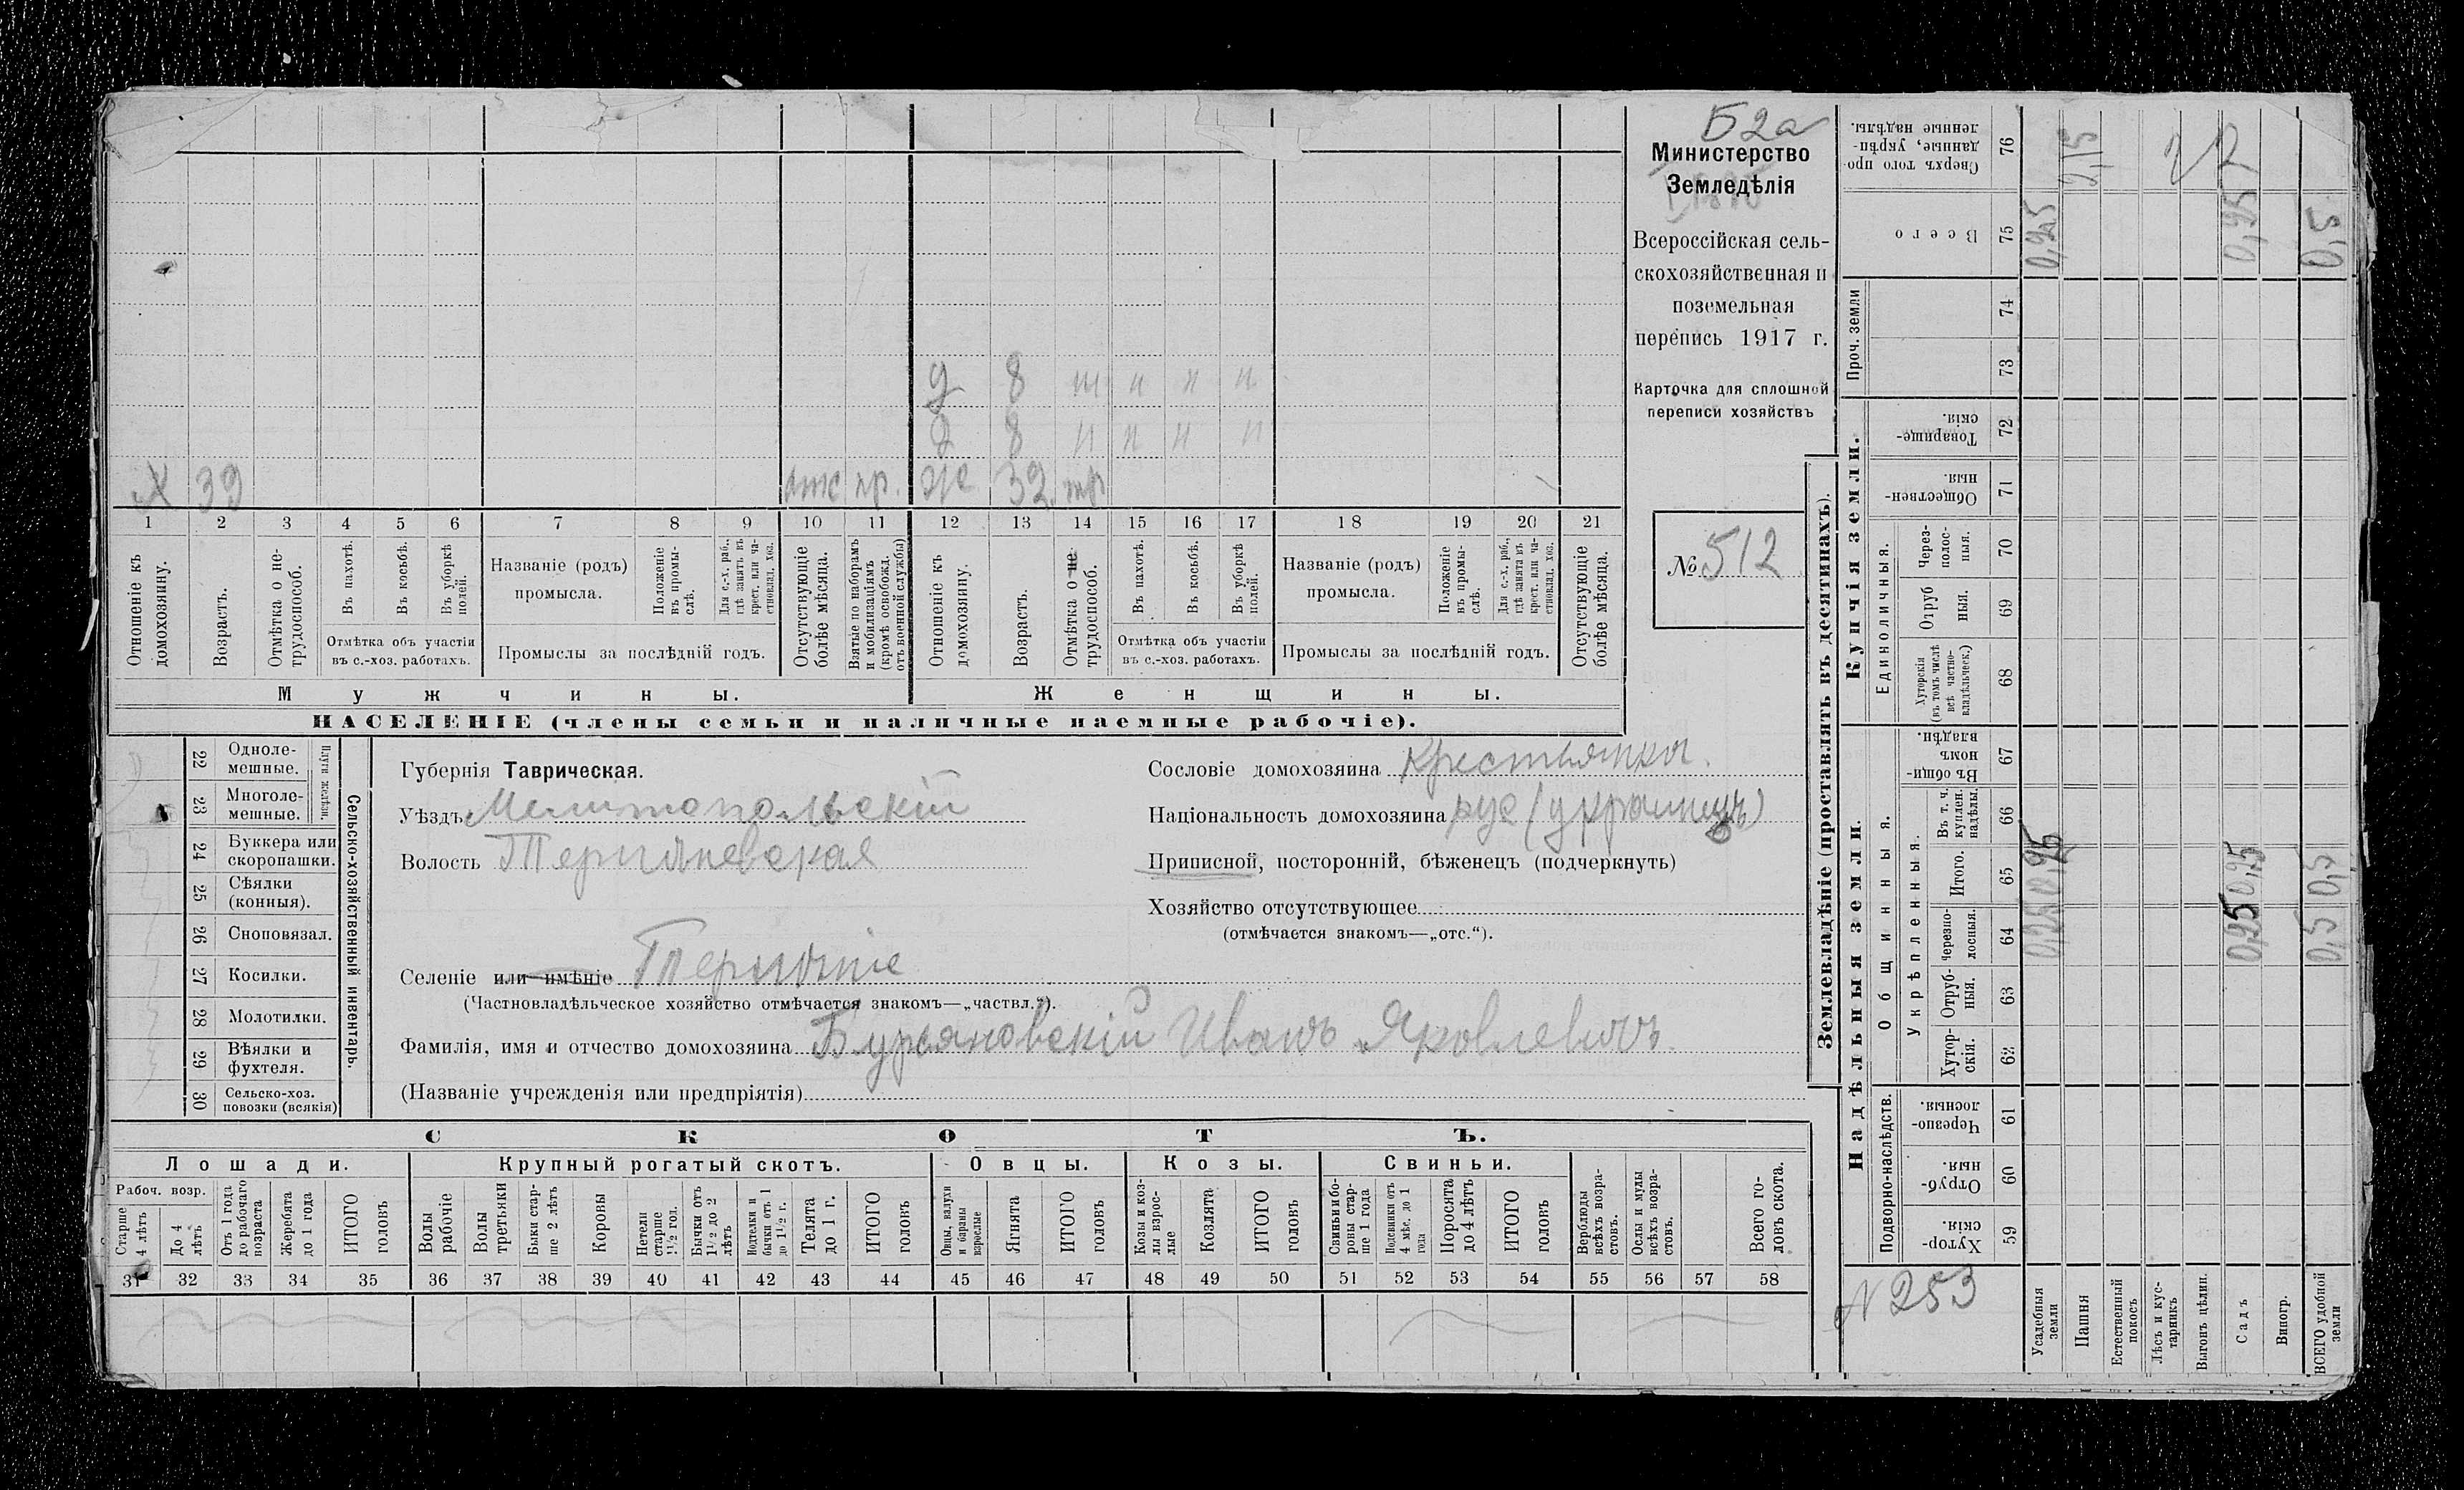 Б2а
Министерство
Земледѣлія
Всероссійская сель-
скохозяйственная и
поземельная
перепись 1917 г.
Карточка для сплошной
переписи хозяйствъ
№ 512
д 8
д 8
Х 39 отс пр. ж 32 тр
1 2 3 4 5 6 7 8 9 10 11 12 13 14 15 16 17 18 19 20 21
Отношеніе къ домохозяину.
Возрастъ.
Отмѣтка о не-трудоспособ.
Въ пахотѣ.
Въ косьбѣ.
Въ уборкѣ полей.
Отмѣтка объ участіи
въ с.-хоз. работахъ.
Названіе (родъ)
промысла.
Положеніе въ промы-слѣ.
Для с.-х. раб., гдѣ занятъ въ крест. или ча-стновлад. хоз.
Промыслы за послѣдній годъ.
Отсутствующіе болѣе мѣсяца.
Взятые по наборамъ и мобилизаціямъ (кромѣ освобожд. отъ военной службы)
Отношеніе къ домохозяину.
Возрастъ.
Отмѣтка о не трудоспособ.
Въ пахотѣ.
Въ косьбѣ.
Въ уборкѣ полей.
Отмѣтка объ участіи
въ с.-хоз. работахъ.
Названіе (родъ)
промысла.
Положеніе въ промы-слѣ.
Для с.-х. раб., гдѣ занята въ крест. или ча-стновлад. хоз.
Промыслы за послѣдній годъ.
Отсутствующіе болѣе мѣсяца.
Мужчины.
Женщины.
НАСЕЛЕНІЕ (члены семьи и наличные наемные рабочіе).
Сельско-хозяйственный инвентарь.
Плуги желѣзн.
22 Одноле-мешные.
23 Многоле-мешные.
24 Буккера или скоропашки.
25 Сѣялки (конныя).
26 Сноповязал.
27 Косилки.
28 Молотилки.
29 Вѣялки и фухтеля.
30 Сельско-хоз. повозки (всякія)
Губернія Таврическая.
Уѣздъ Мелитопольскій
Волость Терпѣневская
Селеніе или имѣніе Терпѣніе
(Частновладѣльческое хозяйство отмѣчается знакомъ—„частвл.“).
Фамилія, имя и отчество домохозяина Бурьяновскій Иванъ Яковлевичъ
(Названіе учрежденія или предпріятія)
Сословіе домохозяина Крестьянка.
Національность домохозяина рус (украинецъ)
Приписной, посторонній, бѣженецъ (подчеркнуть)
Хозяйство отсутствующее
(отмѣчается знакомъ—„отс.“).
СКОТЪ.
Лошади.
Крупный рогатый скотъ.
Овцы.
Козы.
Свиньи.
Рабоч. возр.
Старше 4 лѣтъ
До 4 лѣтъ
Отъ 1 года до рабочаго возраста
Жеребята до 1 года
ИТОГО головъ
Волы рабочіе
Волы третьяки
Быки стар-ше 2 лѣтъ
Коровы
Нетели старше 1½ год.
Бычки отъ 1½ до 2 лѣтъ
Подтелки и бычки отъ 1 до 1½ г.
Телята до 1 г.
ИТОГО головъ
Овцы, валухи и бараны взрослые
Ягнята
ИТОГО головъ
Козы и коз-лы взрос-лые
Козлята
ИТОГО головъ
Свиньи и бо-ровы стар-ше 1 года
Подсвинки отъ 4 мѣс. до 1 года
Поросята до 4 лѣтъ
ИТОГО головъ
Верблюды всѣхъ возра-стовъ.
Ослы и мулы всѣхъ возра-стовъ.
Всего го-ловъ скота.
31 32 33 34 35 36 37 38 39 40 41 42 43 44 45 46 47 48 49 50 51 52 53 54 55 56 57 58
Землевладѣніе (проставлять въ десятинахъ).
Надѣльныя земли.
Купчія земли.
Проч. земли
Подворно-наслѣдств.
Общинныя.
Укрѣпленныя.
Единоличныя.
Сверхъ того про-данные, укрѣп-ленные надѣлы. 76
Всего 75
74
73
Товарище-скія. 72
Обществен-ныя. 71
Через-полос-ныя. 70
Отруб ныя. 69
Хуторскія (въ томъ числѣ всѣ частно-владѣльческ.) 68
Въ общи-номъ владѣн. 67
Въ т. ч. куплен. надѣлы. 66
Итого. 65
Черезпо-лосныя. 64
Отруб-ныя. 63
Хутор-скія. 62
Черезпо-лосныя. 61
Отруб-ныя. 60
Хутор-скія. 59
N 253
Усадебныя земли 0,25 0,25 0,225
Пашня 2,15
Естественный покосъ
Лѣсъ и кус-тарникъ
Выгонъ цѣлин.
Садъ 0,25 0,25 0,25
Виногр.
ВСЕГО удобной земли 0,5 0,5 0,5